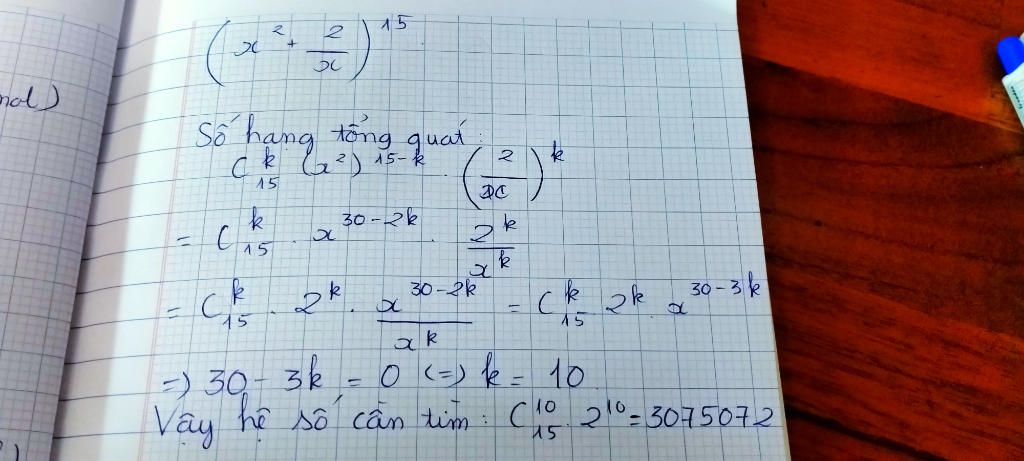 (x² + 2/x)¹⁵
Số hạng tổng quát:
C₁₅ᵏ (x²)¹⁵⁻ᵏ · (2/x)ᵏ
= C₁₅ᵏ · x³⁰⁻²ᵏ · 2ᵏ/xᵏ
= C₁₅ᵏ · 2ᵏ · x³⁰⁻²ᵏ/xᵏ = C₁₅ᵏ 2ᵏ · x³⁰⁻³ᵏ
=) 30 - 3k = 0 (=) k = 10
Vậy hệ số cần tìm: C₁₅¹⁰ · 2¹⁰ = 3075072